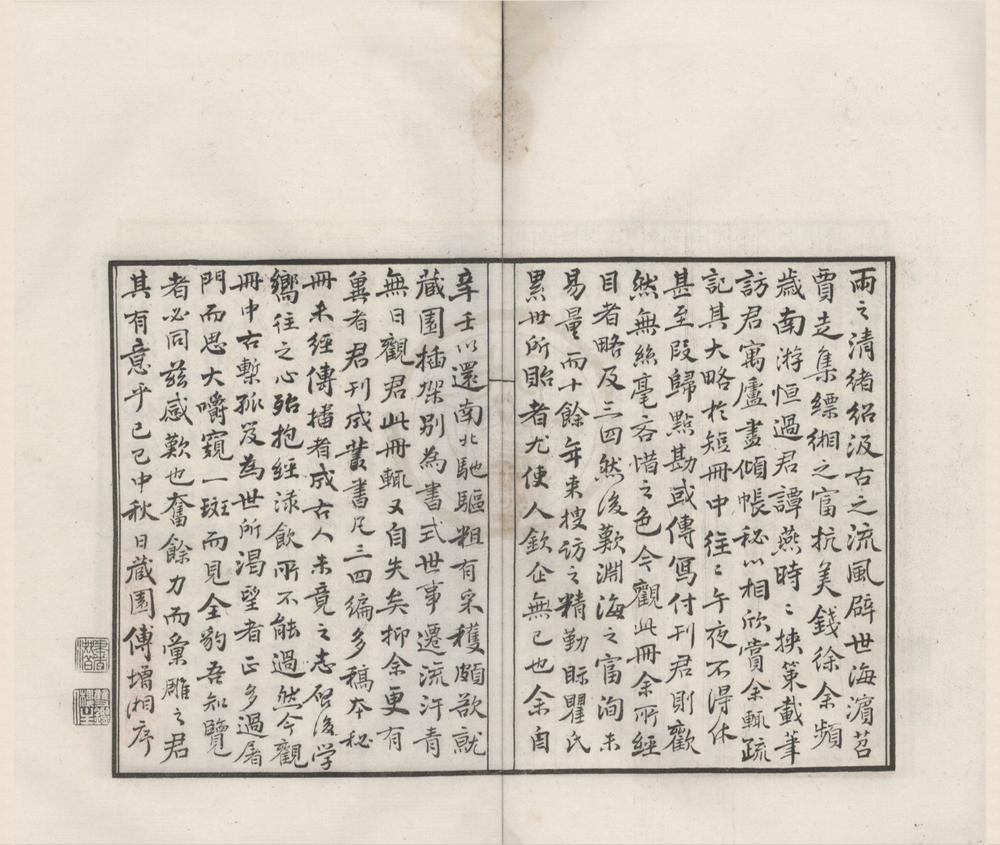 兩之清緒紹汲古之流風辟世海濱苕
賈走集縹緗之富抗美錢徐余頻
歲南游恒過君譚燕時〻挾策載筆
訪君寓廬盡傾帳秘以相欣賞余輒疏
記其大略於短冊中往〻午夜不得休
甚至叚歸點勘或傳寫付刊君則歡
然無絲毫吝惜之色今觀此冊余所經
目者略及三四然後歎淵海之富洵未
易量而十餘年来搜訪之精勤眎瞿氏
累世所貽者尤使人欽企無已也余自
辛壬以還南北馳驅粗有采穫頗欲就
藏園插架別為書式世事遷流汗青
無日觀君此冊輒又自失矣抑余更有
冀者君刊成叢書凡三四編多稿本秘
冊未經傳播者成古人未竟之志啓後学
嚮往之心殆抱經淥飲所不能過然今觀
冊中古槧孤笈為世所渴望者正多過屠
門而思大嚼窺一斑而見全豹吾知覽
者必同茲感歎也奮餘力而彙雕之君
其有意乎己巳中秋日藏園傅增湘序